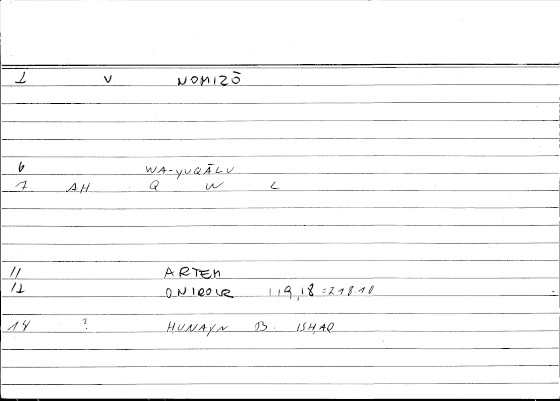 1 V NOMIZŌ
6 WA-YUQĀLU
7 AH Q W L
11 ARTEM
12 ONIROCR 1 19,18 = 21810
14 ? HUNAYN B. ISHAQ